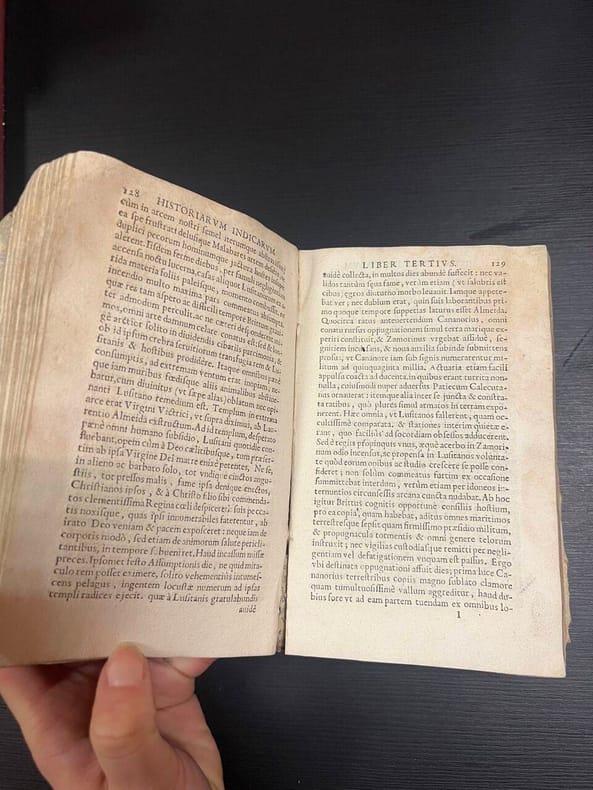 128 HISTORIARVM INDICARVM
cùm in arcem nostri semel iterumque abduxissent
ea spe frustrati delusique Malabares
duplici pecorum hominumque iactura
alerent. Iisdem fermè diebus, per summam negligentiam
accensa noctu lucerna, casas aliquot Lusitanorum
tida materia foliis paleisque, momento combussit, ne
incendio multo maxima pars commeatus absumpta
quæ res tam aspero ac difficili tempore
ter admodum perculit. ac ne cæteri desponderent ani-
mos, omni arte damnum celare conatus est: sed & lon-
gè arctior solito in diuidendis cibariis parsimonia, &
ob id ipsum crebra seruitiorum transfugia rem & Lu-
sitanis & hostibus prodidére. Itaque omnibus panè
consumptis, ad extremam ventum erat inopiam, ne-
que iam muribus fœdisque aliis animalibus abstine-
batur, cum diuinitus (vt sæpe aliàs) oblatum nec opi-
nanti Lusitano remedium est. Templum in extrema
arce erat Virgini Victrici, vt supra diximus, ab Lau-
rentio Almeida exstructum. Ad id templum, desperato
pænè omni humano subsidio, Lusitani quotidie con-
fluebant, opem cùm à Deo cælitibusque, tum præser-
tim ab ipsa Virgine Dei matre enixè petentes, Ne se,
in alieno ac barbaro solo, tot vndique cinctos angu-
stiis, tot pressos malis, fame ipsa denique enectos,
Christianos ipsos, & à Christo filio sibi commenda-
tos clementissima Regina cœli despiceret: suis pecca-
tis noxisque, quas ipsi innumerabiles faterentur, ab
irato Deo veniam & pacem exposceret: neque iam de
corporis modò, sed etiam de animorum salute pericli-
tantibus, in tempore subueniret. Haud incassum missæ
preces. Ipsomet festo Assumptionis die, ne quid mira-
culo rem posset eximere, solito vehementiùs intumes-
cens pelagus, ingentem locustæ numerum ad ipsas
templi radices ejecit. quæ à Lusitanis gratulabundis
auidè
LIBER TERTIVS. 129
auidè collecta, in multos dies abundè suffecit: nec va-
lidos tantùm ipsa fame, verùm etiam (vt salubris est
cibus) ægros diuturno morbo leuauit. Iamque appete-
bat ver; nec dubium erat, quin suis laborantibus pri-
mo quoque tempore suppetias laturus esset Almeida.
Quocirca ratus anteuertendum Cananorius, omni
conatu rursus oppugnationem simul terra marique ex-
periri constituit, & Zamorinus vrgebat assiduè, se-
gnitiem incusans, & noua auxilia subinde submittens
prorsus, vt Cananore iam sub signis numerarentur mi-
litum ad quinquaginta millia. Actuaria etiam facili
appulsa coacta ad ducenta, in quibus erant tritita non-
nulla, cuiusmodi nuper aduersus Patiecum Calecuta-
nus ornauerat; itemque alia inter se juncta & constra-
ta ratibus, quò plures simul armatos in terram expo-
nerent. Hæc omnia, vt Lusitanos fallerent, quam oc-
cultissimè comparata, & stationes interim quietæ e-
rant, quo faciliùs ad socordiam obsessos adducerent.
Sed è regiis propinquis vnus, æquè acerbo in Zamori-
num odio incensus, ac propensa in Lusitanos voluntate
e quod eorum opibus ac studio crescere se posse con-
fideret; non solùm commeatus furtim ex occasione
summittebat interdum, verùm etiam per idoneos in-
ternuntios circunfessis arcana cuncta nudabat. Ab hoc
igitur Brittus cognitis opportunè consiliis hostium,
pro ea copia, quam habebat, aditus omnes maritimos
terrestresque sepsit quàm firmissimo præsidio militum,
& propugnacula tormentis & omni genere telorum
instruxit; nec vigilias custodiasque remitti per negli-
gentiam vel defatigationem vnquam est passus. Ergo
vbi destinata oppugnationi affuit dies; prima luce Ca-
nanorius terrestribus copiis magno sublato clamore
quam tumultuosissimè vallum aggreditur, haud du-
bius fore vt ad eam partem tuendam ex omnibus lo-
I